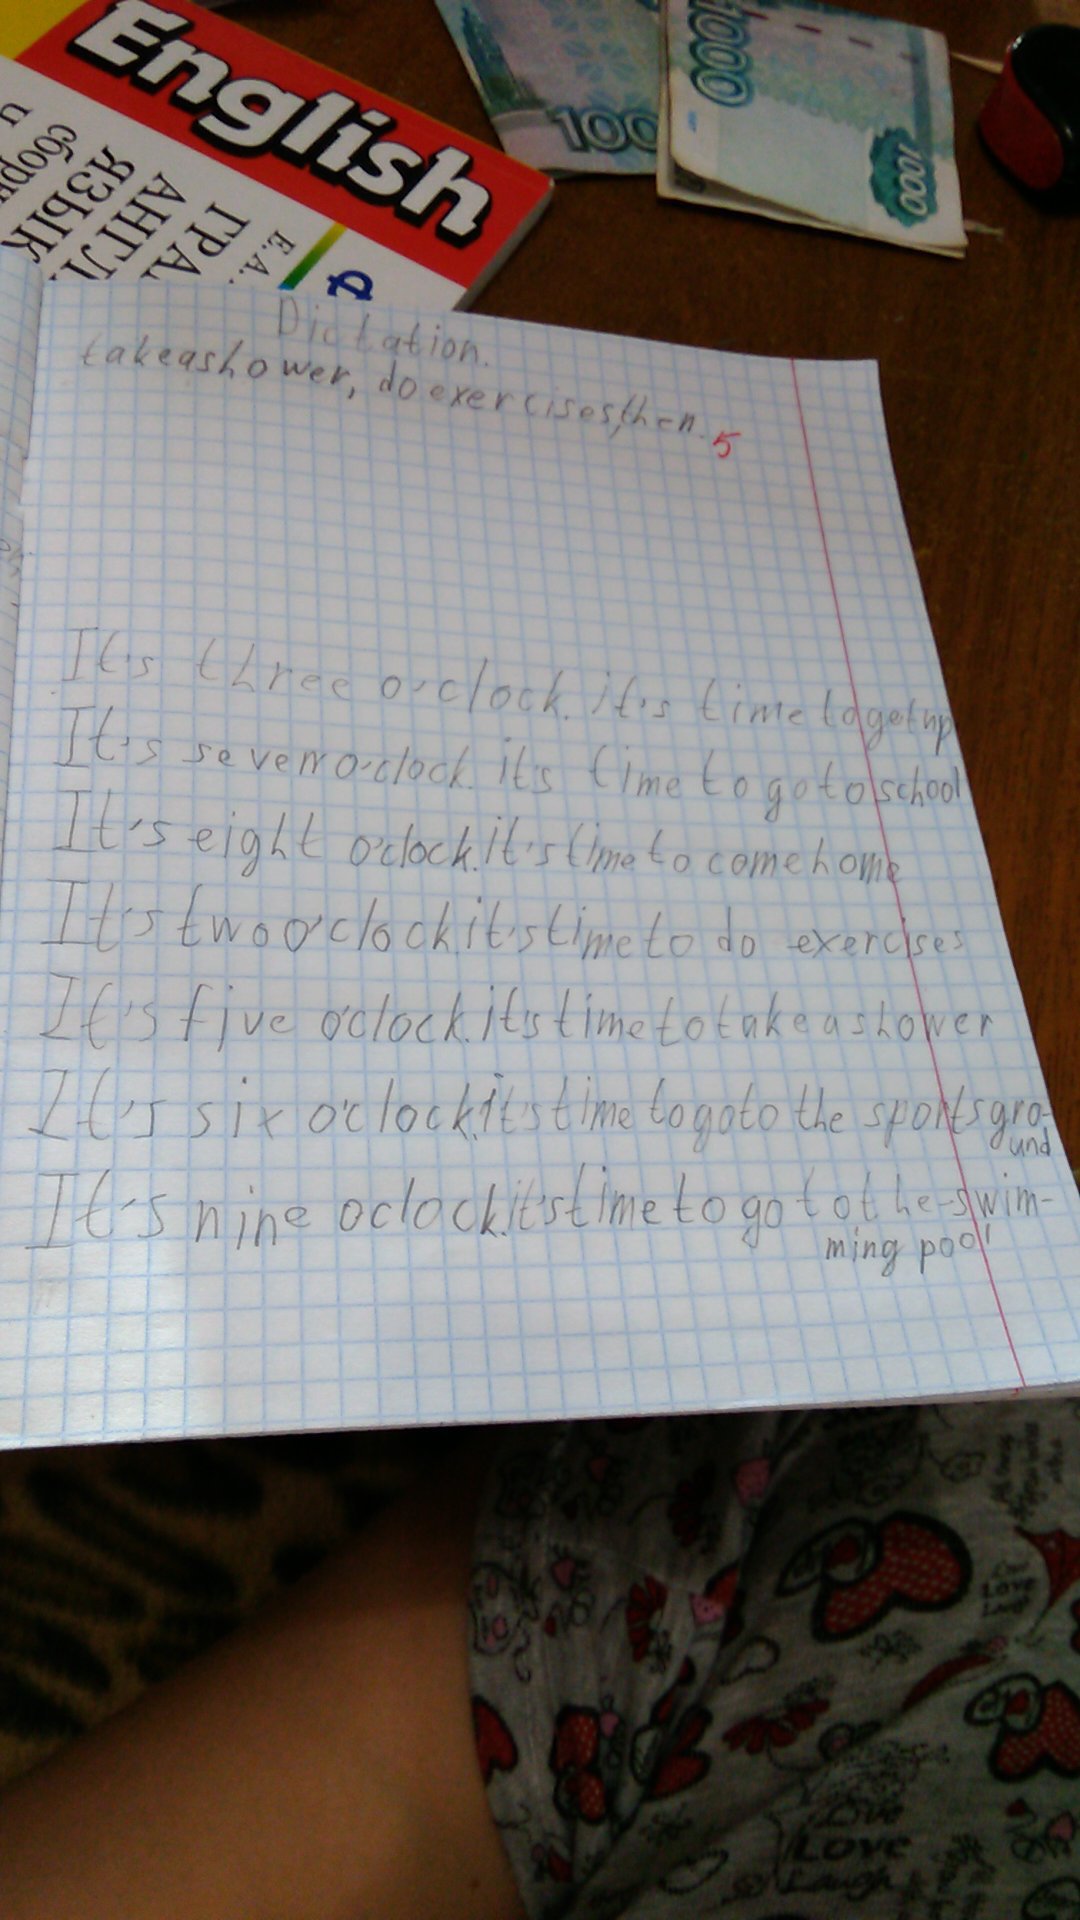 English
1000
100
1000
Е.А.
ГРА
АНГЛ
ЯЗЫК
сборн
Dictation.
take a shower, do exercises, then.
5
It's three o'clock. it's time to get up
It's seven o'clock. it's time to go to school
It's eight o'clock. it's time to come home
It's two o'clock. it's time to do exercises
It's five o'clock. it's time to take a shower
It's six o'clock. it's time to go to the sportsgro-
und
It's nine oclock. it's time to go to the swim-
ming pool
Live
Love
Laugh